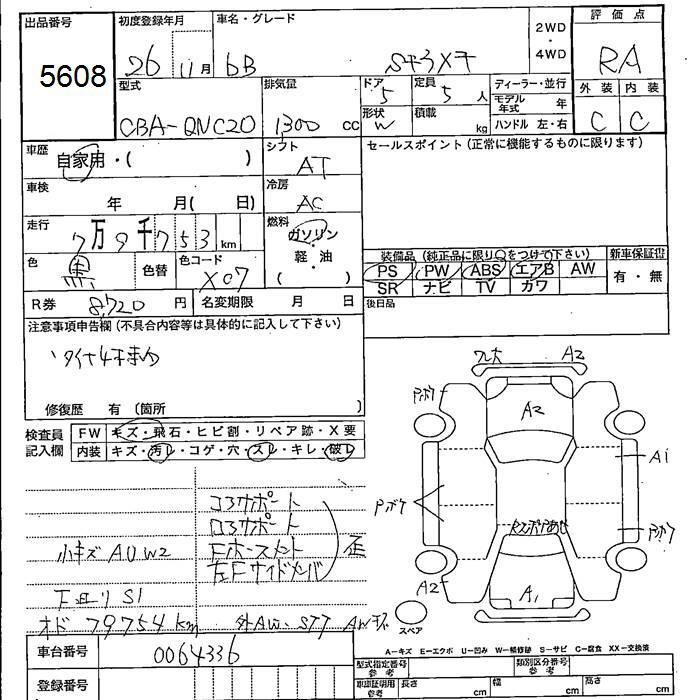 出品番号 5608
初度登録年月 26 11月
車名・グレード bB
2WD・4WD
評価点 RA
外装 C 内装 C
型式 CBA-QNC20
排気量 1300 cc
ドア 5 定員 5 人
形状 W 積載 kg
ディーラー・並行
モデル年式 年
ハンドル 左・右
車歴 自家用・( )
シフト AT
セールスポイント(正常に機能するものに限ります)
車検 年 月( 日)
冷房 AC
走行 7万9千753km
燃料 ガソリン 軽・油 ( )
色 黒 色替 色コード X07
装備品(純正品に限り○をつけて下さい) 新車保証書
PS PW ABS エアB AW 有・無
SR ナビ TV カワ
R券 8,720円 名変期限 月 日
後日品
注意事項申告欄(不具合内容等は具体的に記入して下さい)
修復歴 有 (箇所 )
検査員記入欄 FW キズ・飛石・ヒビ割・リペア跡・X要
内装 キズ・汚レ・コゲ・穴・スレ・キレ・破レ
コアサポート
ロアサポート
小キズ AUW2 Fホースメント 歪
左Fサイドメンバ
F廻り S1
オド 79754km 外AW・STT AWキズ
A2
A2
Pボケ
A1
Pボケ
Pボケ
A2
A1
スペア
車台番号 0064336
A-キズ E-エクボ U-凹み W-補修跡 S-サビ C-腐食 XX-交換済
型式指定番号 参考 類別区分番号 参考
登録番号
車庫証明用参考 長さ cm 幅 cm 高さ cm